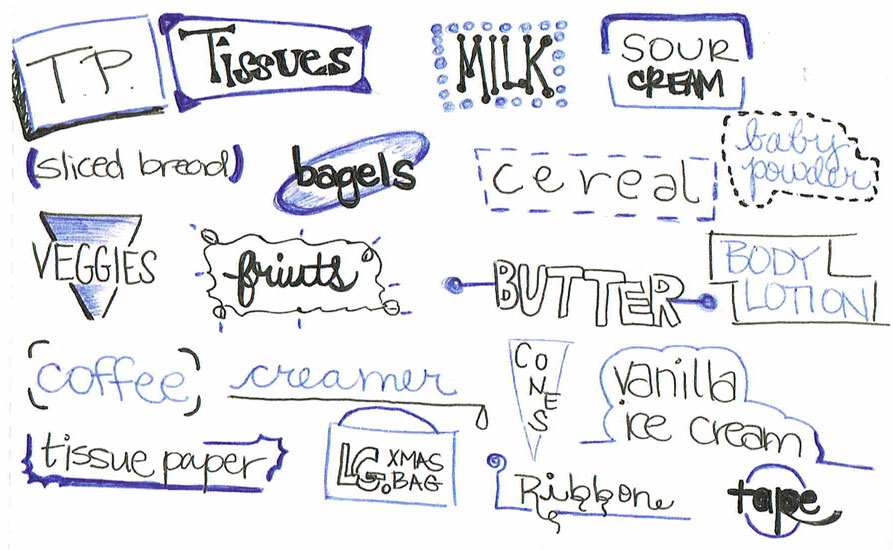 T.P.
Tissues
MILK
SOUR
CREAM
(sliced bread)
bagels
cereal
baby
powder
VEGGIES
friuts
BUTTER
BODY
LOTION
(coffee)
creamer
CONES
vanilla
ice cream
tissue paper
LG. XMAS
BAG
Ribbone
tape